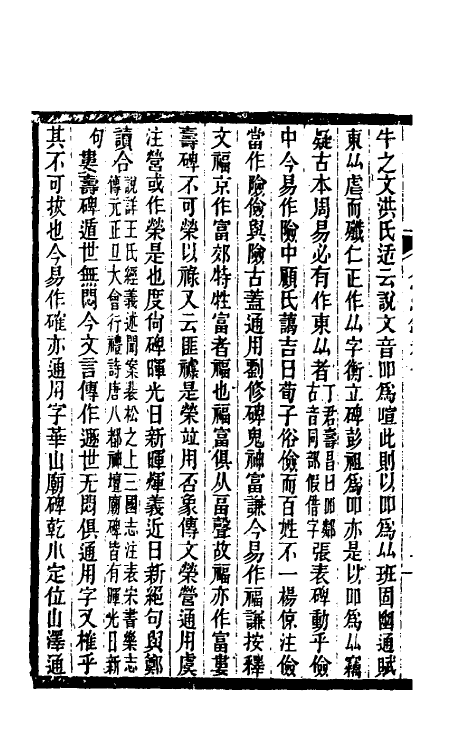 牛之文洪氏适云說文音吅爲喧此則以吅爲厸班固幽通賦
東厸虐而殲仁正作厸字衡立碑彭祖爲吅亦是以吅爲厸竊
疑古本周易必有作東厸者丁君壽昌曰吅鄰古音同部假借字張表碑動乎儉
中今易作險中顧氏藹吉曰荀子俗儉而百姓不一楊倞注儉
當作險儉與險古蓋通用劉修碑鬼神富謙今易作福謙按釋
文福京作富郊特牲富者福也福富俱从畐聲故福亦作富婁
壽碑不可榮以祿又云匪㩀是榮竝用否象傳文榮營通用虞
注營或作榮是也度尙碑暉光日新暉輝義近日新絕句與鄭
讀合說詳王氏經義述聞案裴松之上三國志注表宋書樂志傳元正旦大會行禮詩唐八都神壇廟碑皆有暉光日新
句婁壽碑遁世無悶今文言傳作遯世无悶俱通用字又榷乎
其不可拔也今易作確亦通用字華山廟碑乾㐲定位山澤通